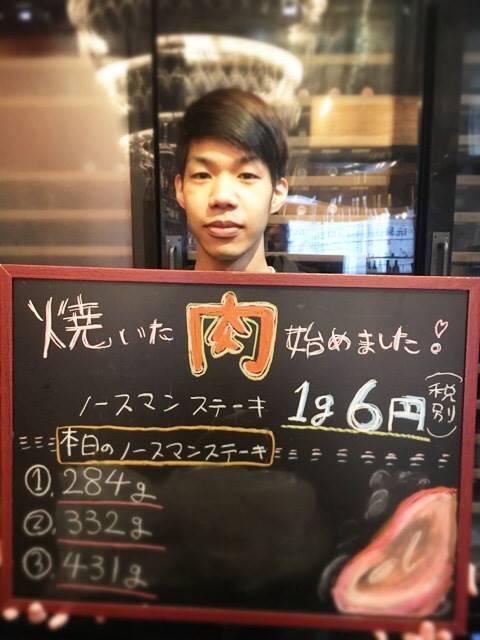 焼いた肉始めました!
ノースマンステーキ 1g 6円(税別)
本日のノースマンステーキ
①. 284g
②. 332g
③. 431g